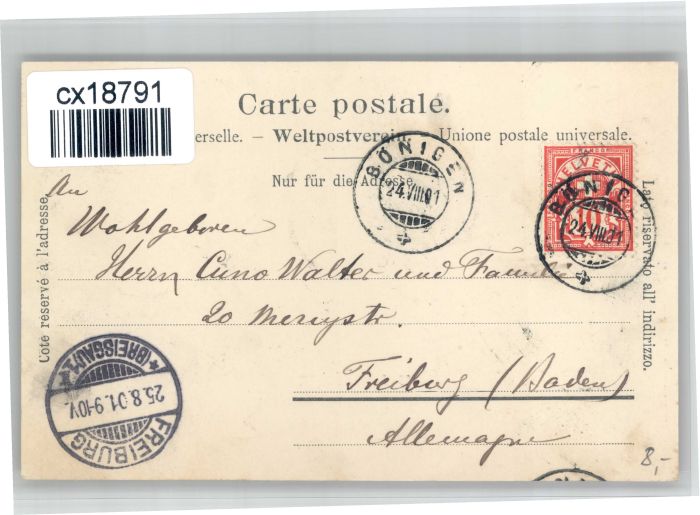 cx18791
Carte postale.
erselle. – Weltpostverein. – Unione postale universale.
Nur für die Adresse.
BÖNIGEN
24.VIII.01
HELVETIA
10
BÖNIG
24.VIII.01
Côté réservé à l'adresse.
Lato riservato all' indirizzo.
An
Wohlgeboren
Herrn Cuno Walter und Familie
20 str.
Freiburg (Baden)
Allemagne
FREIBURG
25.8.01.9-10V.
*(BREISGAU)1.*
8,-